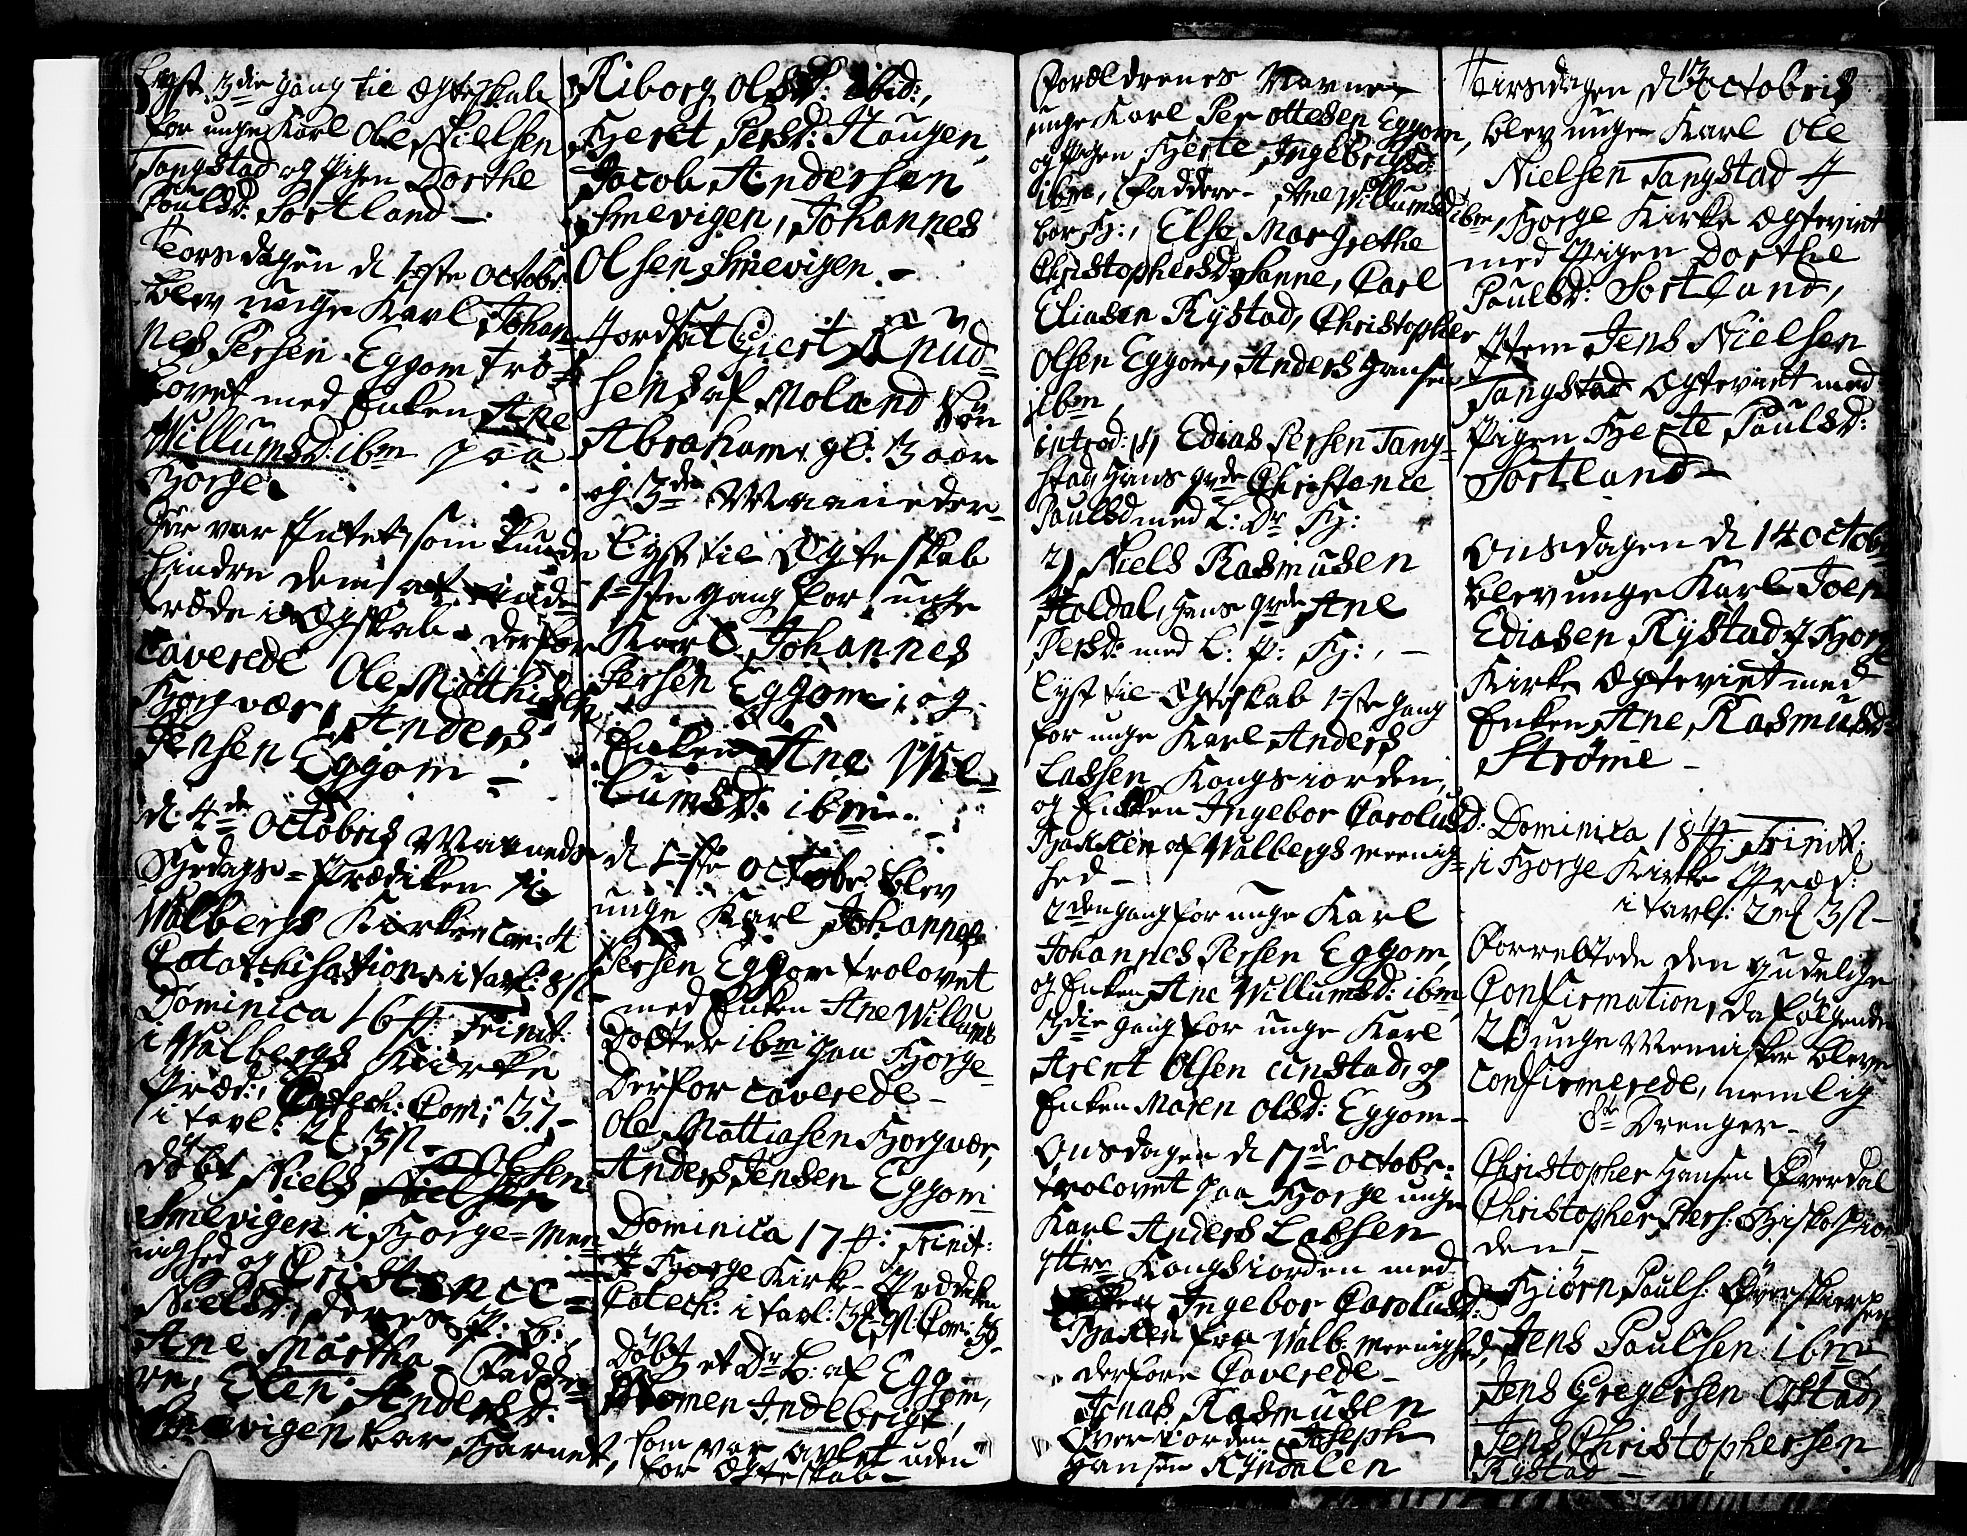 Lyst 3die Gang til Ægteskab
for unge Karl Ole Nielsen
Tangstad og Pigen Dorthe
Paulsd: Sortland –
Torsdagen d 1ste Octobr:
blev unge Karl Johan
nes Persen Eggom tro-
lovet med Enken Ane
Willumsd: ibm paa
Borge
Her var Intet, som kunde
hindre dem at inde
træde i Ægteskab – derfor
Caverede Ole Matthisen
Borgvær, Anders
Jensen Eggom –
d. 4de Octobris Maaneds
Bedags-Prædiken i
Walbergs Kirke Com: 4
Catechisation i tavl: 8 s
Dominica 16 p: Trinit:
i Walbergs Kirke
Præd:, Catech: Com: 37 –
i tavl: 2 3 s –
Døbt Niels Olsen
Smevigen i Borge-Men
nighed og Christence
Nielsd: deres P: B:,
Ane Martha – Fadde
re, Elen Andersd:
Smevigen bar Barnet,
Kiborg Olsd: ibid:,
Beret Persd: Haugen,
Jacob Andersen
Smevigen, Johannes
Olsen Smevigen –
Jordsat Giert Knud-
sens af Moland Søn
Abraham, gl: 3 aar
og 3de Maaneder –
Lyst til Ægteskab
1ste gang for unge
Karl Johannes
Persen Eggom, og
Enken Ane Wil-
lumsd: ibm –
d 1ste Octobr: blev
unge Karl Johannes
Persen Eggom trolovet
med Enken Ane Willums
Dotter ibm paa Borge –
Derfor caverede –
Ole Mattiasen Borgvær,
Anders Jensen Eggom
Dominica 17 p: Trinit:
I Borge Kirke Prædiken
Catech: i tavl: 3 Com:
Døbt et Dr: B: af Eggom,
Nomen Indebrigt,
som var avlet uden
for Ægteskab –
Forældrenes Navne
unge Karl Per Ottesen Eggom,
og Pigen Berte Ingebrigtsd:
ibm, Faddere – Ane Willumsd ibm,
bar B:, Else Margrethe
Christophersd Sanne, Carl
Eliasen Rystad, Christopher
Olsen Eggom, Anders Hansen
ibm
introd: 1) Edias Persen Tang-
stad, hans qvde Christence
Paulsd med L: Dr B:
2) Niels Rasmusen
Holdal, hans qvde Ane
Persd: med L: P: B:, –
Lyst til Ægteskab 1ste gang
for unge Karl Anders
Lassen Kongsiorden,
og Enken Ingebor Carolusd:
Backen af Walbergs Meenig-
hed –
2den gang for unge Karl
Johannes Persen Eggom,
og Enken Ane Willumsd: ibm,
3die gang for unge Karl
Arent Olsen Unstad, og
Enken Maren Olsd: Eggom –
Onsdagen d 7de Octobr:
trolovet paa Borge unge
Karl Anders Lassen
Yttre Kongsiorden med
Enken Ingebor Carolusd:
Backen fra Walb: Meenighed,
derfore Caverede –
Jonas Rasmusen
Joseph
Hansen Ryndalen
Tirsdagen d 13 Octobris
blev unge Karl Ole
Nielsen Tangstad I
Borge Kirke Ægteviet
med Pigen Dorthe
Paulsd: Sortland,
Item Jens Nielsen
Tangstad Ægteviet med
Pigen Berte Paulsd:
Sortland –
Onsdagen d 14 Octobr
blev unge Karl Joen
Ediasen Rystad I Borge
Kirke Ægteviet med
Enken Ane Rasmusd:
Strøme –
Dominica 18 p: Trinit:
i Borge Kirke Præd:
i tavl: 2 3 s –
Forrettede den gudelige
Confirmation, da følgende
20 unge Mennisker bleve
confirmerede, nemlig
8te Drenger –
Christopher Hansen Øverdal
Christopher Pers:
den –
Biørn Pauls:
Jens Paulsen ibm
Jens Gregersen
Jens Christophersen
Rystad –